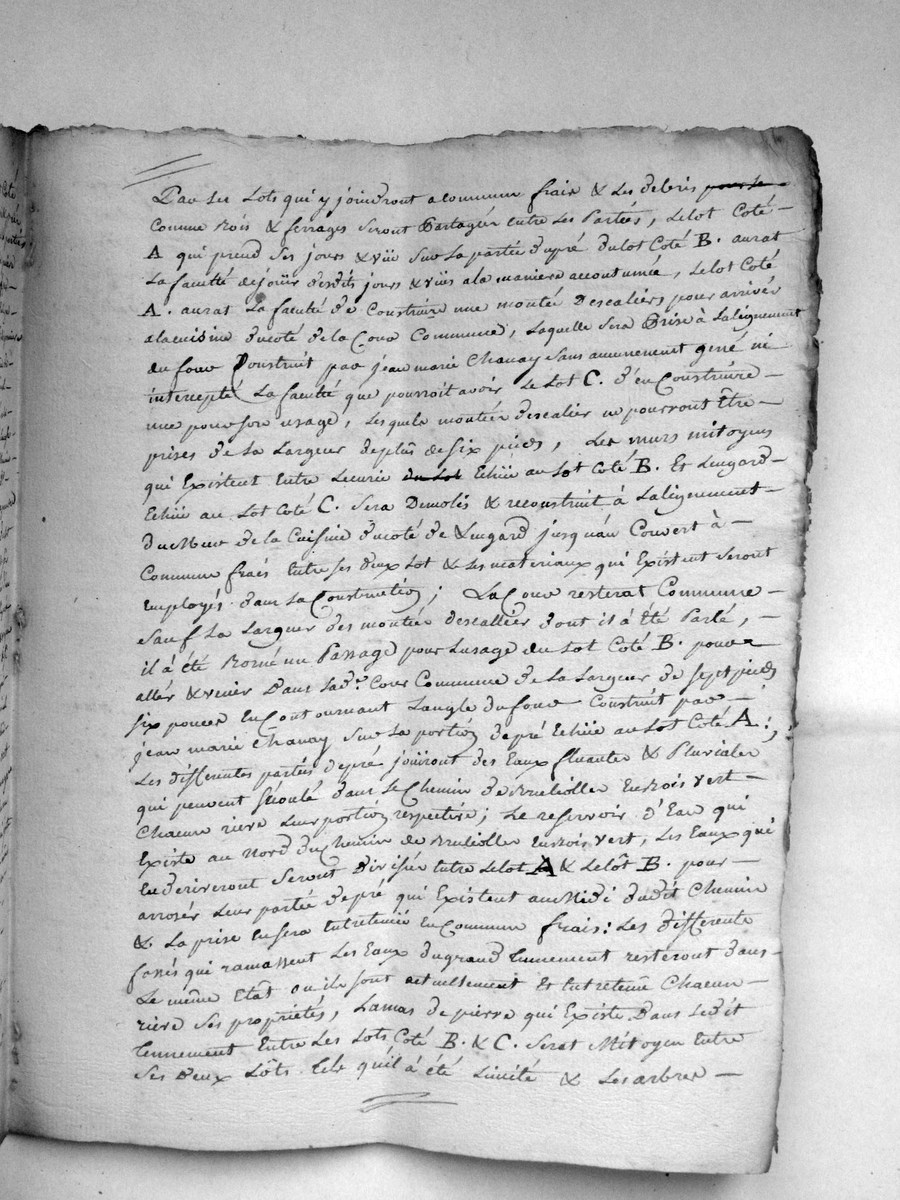 Par les Lots qui y joindront a commun frais & Les debris pour le
Comme Bois & ferrages seront Partagér entre Les Partiés, Le lot Coté
A qui prend ses jours & vüe sur La partié du pré du lot Coté B. aurat
La faculté de joüir desdits jours & vües ala maniere accoutumée, Le lot Coté
A. aurat La faculté de Construire une montée Descaliers pour arrivér
a la cuisine du coté de la Cour Commune, Laquelle sera Prise à Laleignement
du four Construit par jean marie Chanay sans aucunement gené ni
intercepté La faculté que pourroit avoir Le Lot C. d'en Construire
une pour son usage, Lesquels montéér descalier ne pourront Être
prises de La Largeur de plûs de six pieds, Les murs mitoyens
qui Existent Entre Lecurie du Lot Echüe au Lot Coté B. Et Lengard
Echüe au Lot Coté C. sera Demolis & reconstruit à Laleignement
du Mur de la Cuisine du coté de Lengard jusqu'au Couvert à
Commune frais Entre ses deux Lot & Les materiaux qui Existent seront
Employés dans La Construction; La Cour resterat Commune
sauf La Largeur des montéér descallier dont il à été Parlé,
il à été Borné un Passage pour Lusage du Lot Coté B. pour
allér & venir Dans Lad.e Cour Commune de La Largeur de sept pieds
six pouces En Contournant Langle du four Construit par
jean marie Chanay sur La portion de pré Echüe au Lot Coté A;
Les differentes partiés de pré joüiront des Eaux fluantes & Pluviales
qui peuvent sécoulé dans Le Chemin de En Bois vert
Chacun riere Leur portion respective; Le reservoir d'Eau qui
Existe au Nord du Chemin de En Bois vert, Les Eaux qui
En deriveront seront divisér Entre Le lot A & Le lôt B. pour
arrosér Leur partié de pré qui Existent au Midi dudit Chemin
& La prise En sera Entretenüe En Commune frais: Les differents
fossés qui ramassent Les Eaux du grand tennement resteront dans
Le même Etat ou ils sont actuellement Et Entretenu Chacun
riere ses propriétés, Lamas de pierre qui Existe Dans Ledit
tennement Entre Les Lots Coté B. & C. serat Mitoyen Entre
ses Deux Lôts tels quil à été Limité & Les arbres